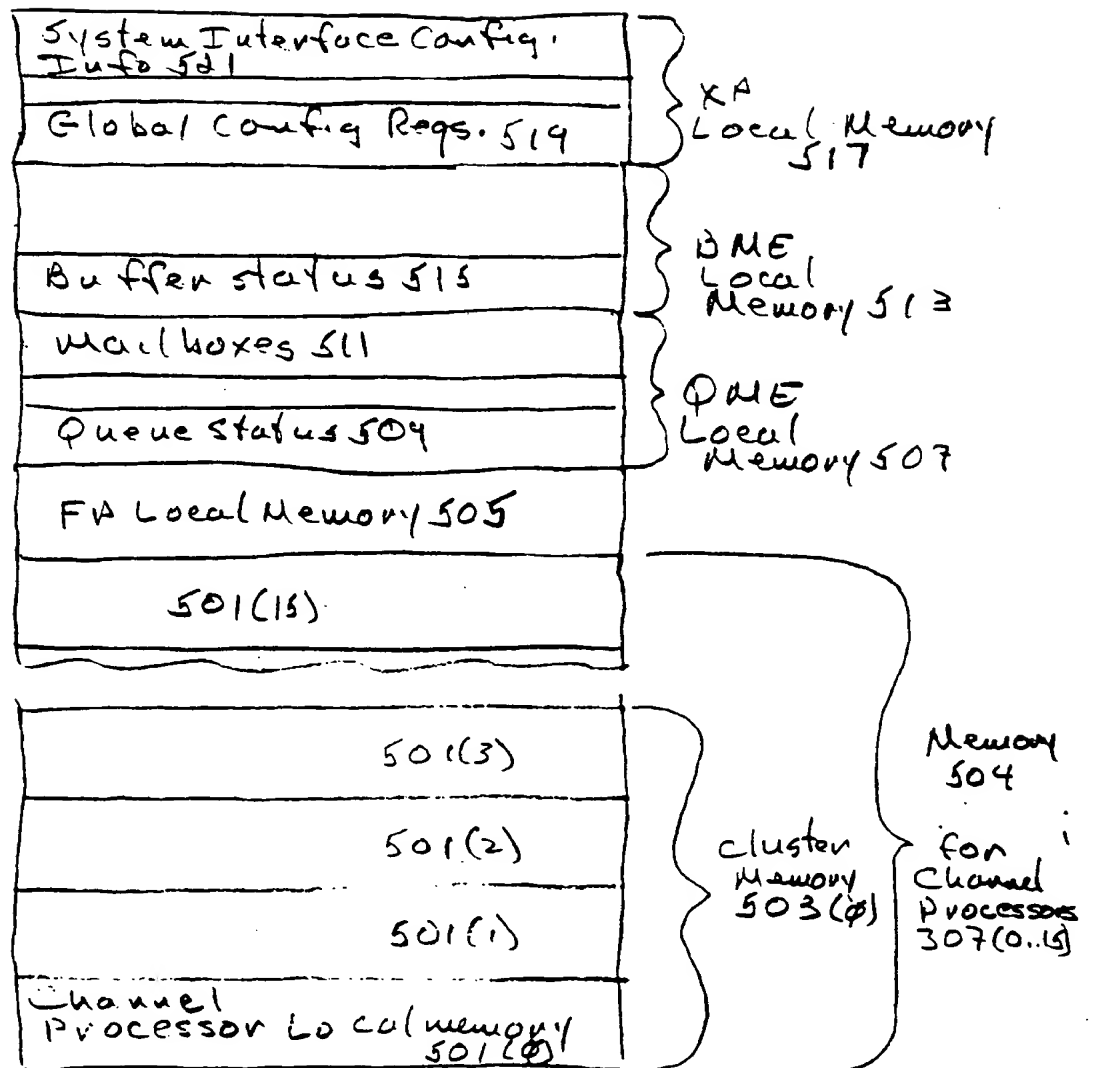 System Interface Config.
Info 521
Global Config Regs. 519
XP
Local Memory
517
Buffer status 515
BME
Local
Memory 513
Mailboxes 511
Queue Status 509
QME
Local
Memory 507
FP Local Memory 505
501(15)
501(3)
501(2)
501(1)
Channel
Processor Local memory
501(0)
cluster
Memory
503(0)
Memory
504
for
Channel
Processors
307(0..15)